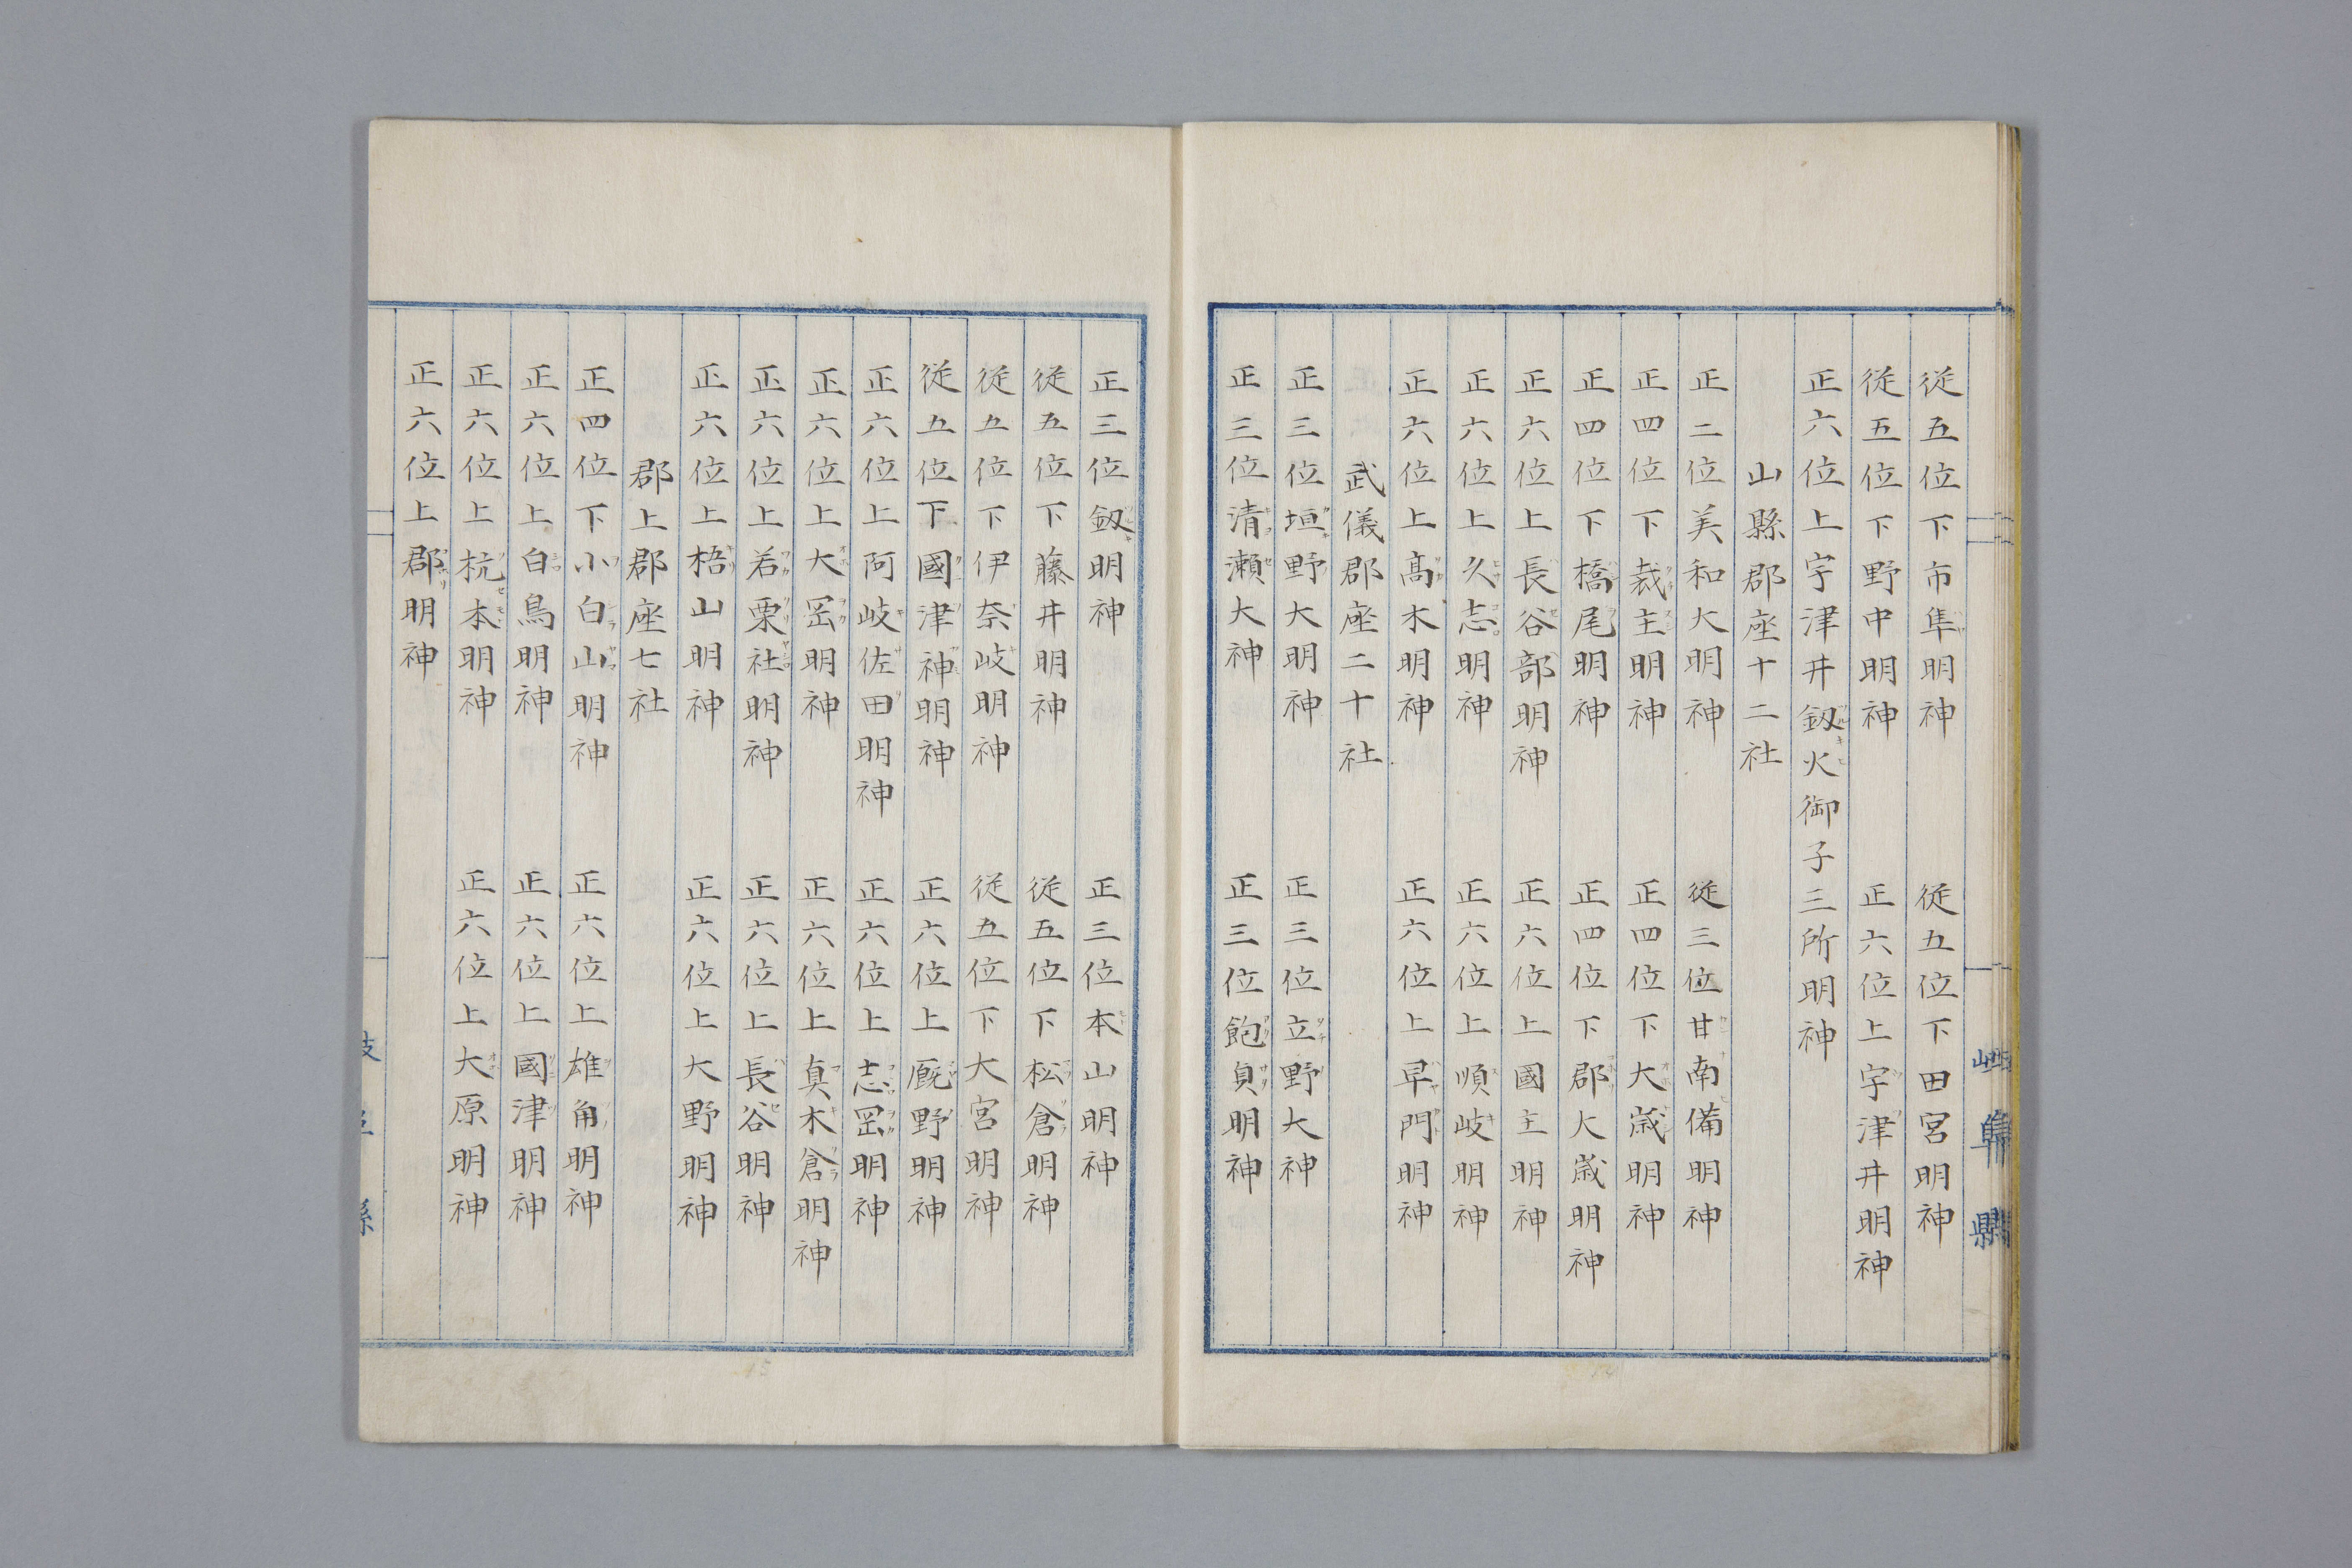 従五位下市隼明神 従五位下田宮明神
従五位下野中明神 正六位上宇津井明神
正六位上宇津井釼火御子三所明神
山縣郡座十二社
正二位美和大明神 従三位甘南備明神
正四位下裁主明神 正四位下大歳明神
正四位下橋尾明神 正四位下郡大歳明神
正六位上長谷部明神 正六位上國主明神
正六位上久志明神 正六位上順岐明神
正六位上髙木明神 正六位上早門明神
武儀郡座二十社
正三位垣野大明神 正三位立野大神
正三位清瀬大神 正三位飽貟明神
正三位釼明神 正三位本山明神
従五位下藤井明神 従五位下松倉明神
従五位下伊奈岐明神 従五位下大宮明神
従五位下國津神明神 正六位上厩野明神
正六位上阿岐佐田明神 正六位上志罡明神
正六位上大罡明神 正六位上真木倉明神
正六位上若栗社明神 正六位上長谷明神
正六位上梧山明神 正六位上大野明神
郡上郡座七社
正四位下小白山明神 正六位上雄角明神
正六位上白鳥明神 正六位上國津明神
正六位上杭本明神 正六位上大原明神
正六位上郡明神